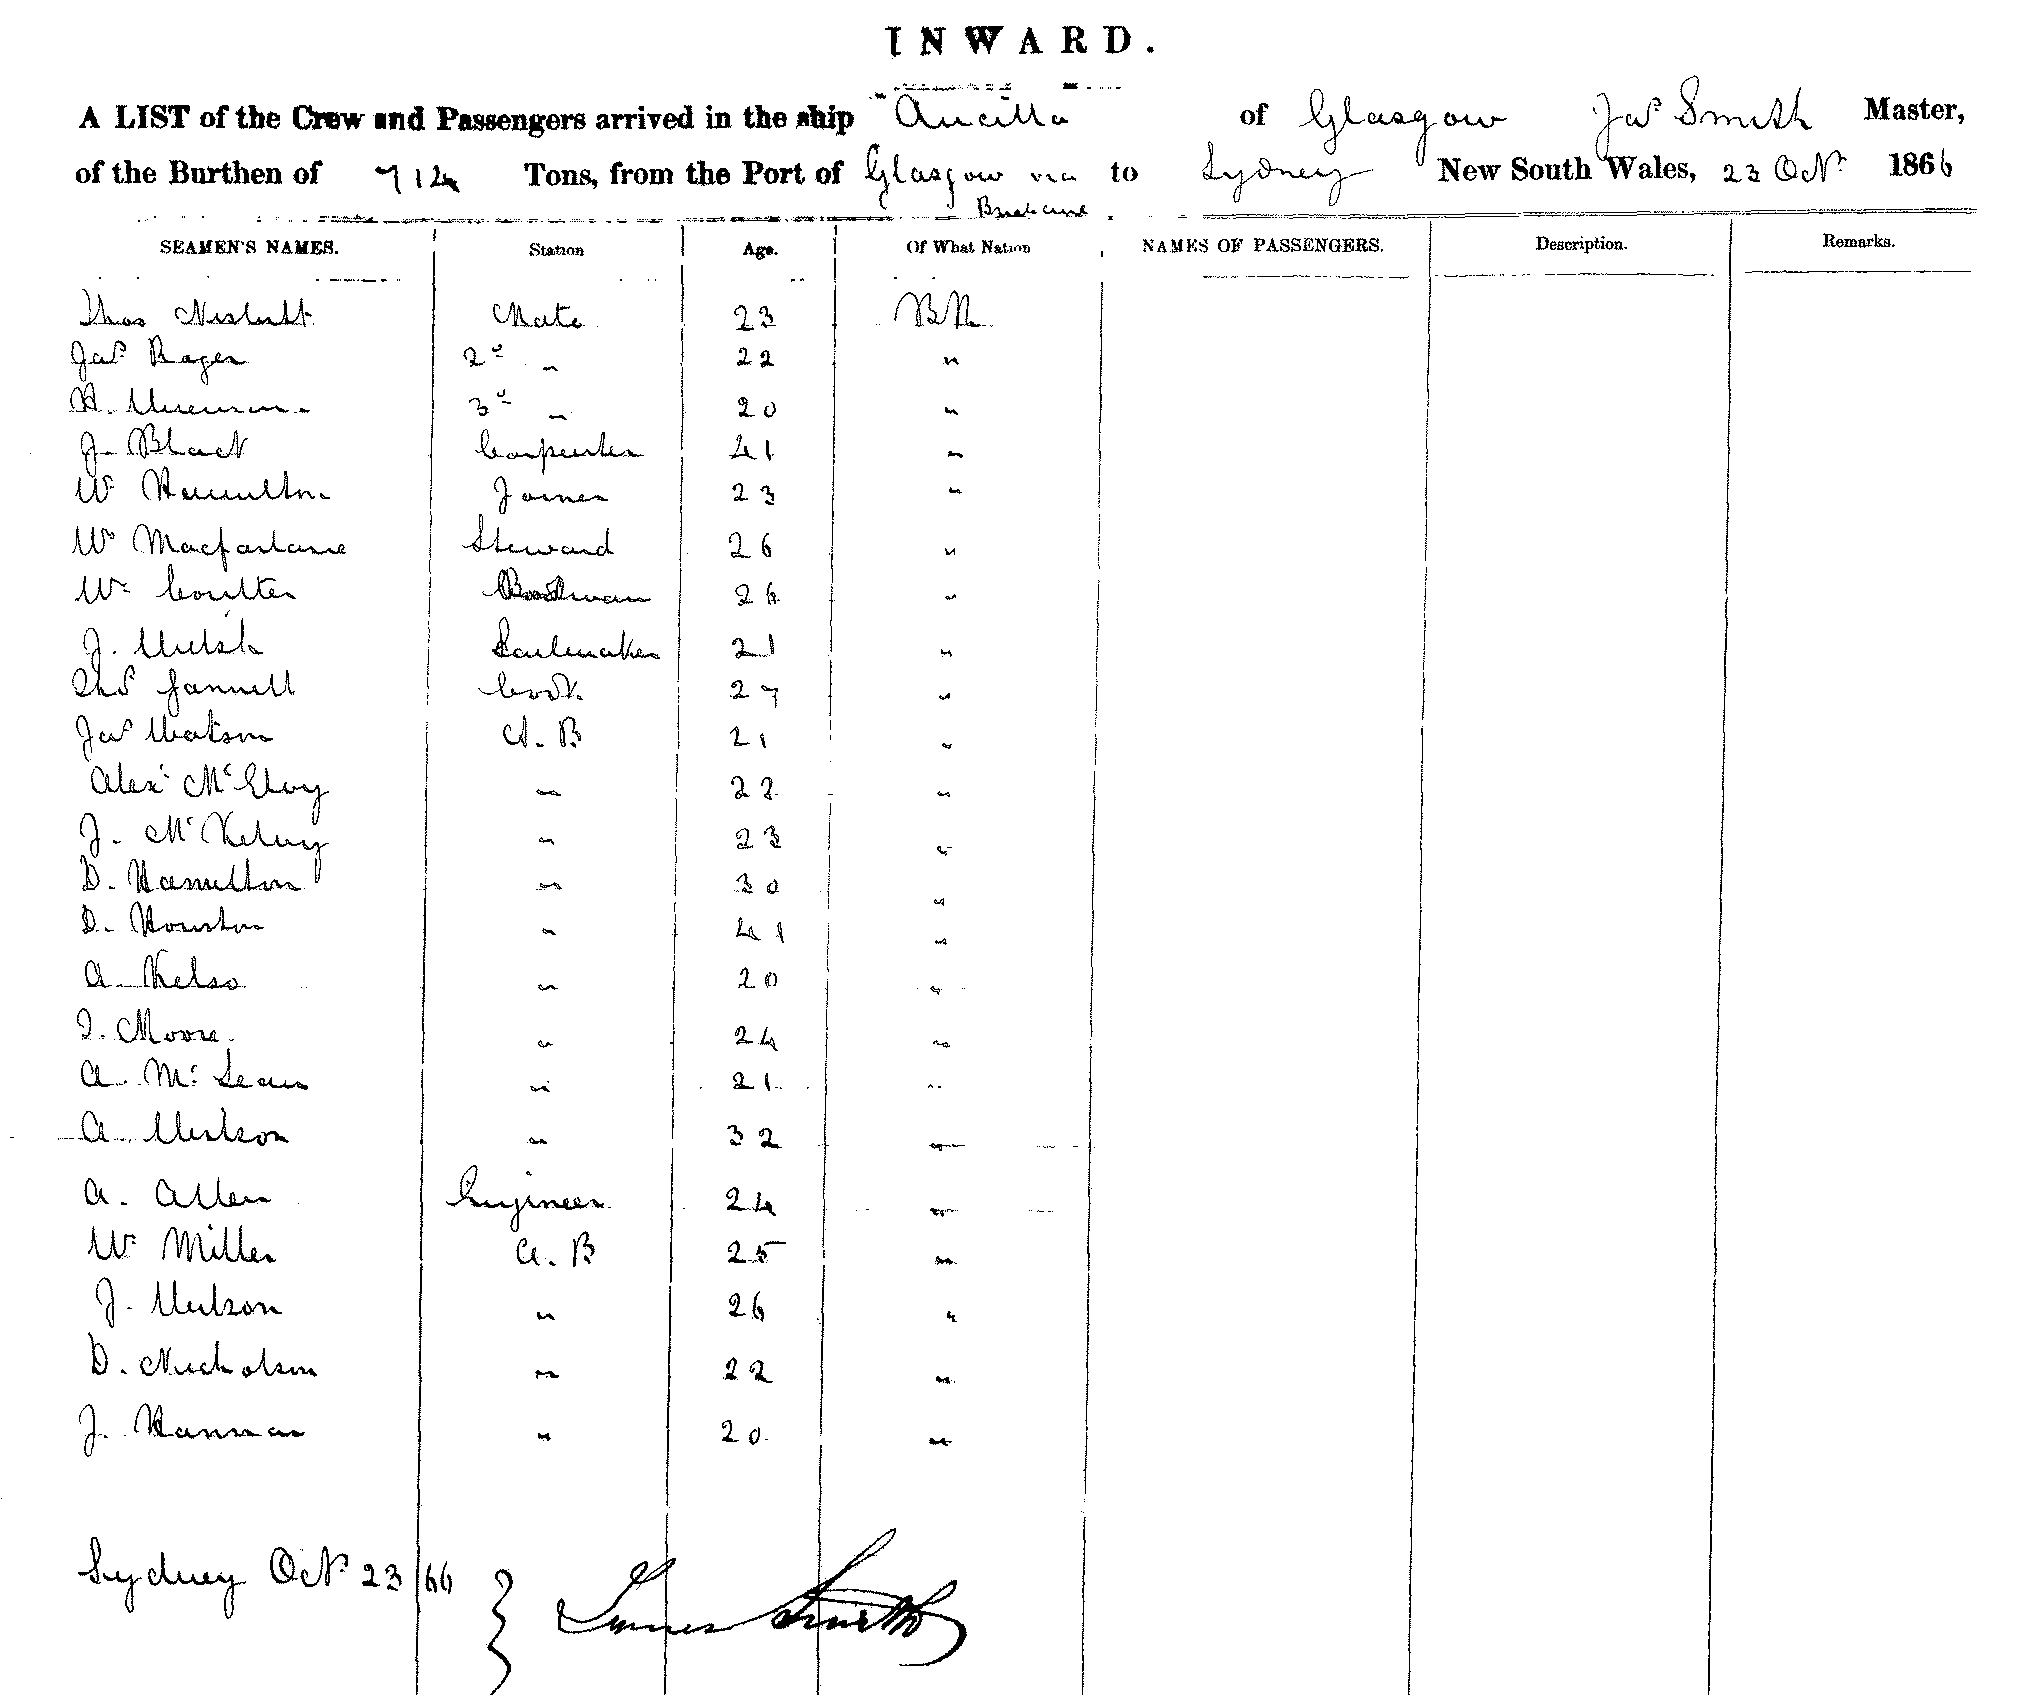 INWARD.
A LIST of the Crew and Passengers arrived in the ship Ancilla of Glasgow Jas Smith Master,
of the Burthen of 714 Tons, from the Port of Glasgow via Brisbane to Sydney New South Wales, 23 Octr 1866
SEAMEN'S NAMES. Station Age. Of What Nation NAMES OF PASSENGERS. Description. Remarks.
Thos Nisbett Mate 23 Br
Jas Roger 2d " 22 "
H. 3d " 20 "
J. Black Carpenter 41 "
W Hamilton Joiner 23 "
Wm Macfarlane Steward 26 "
Wm Coulter Boatswan 26 "
J. Welsh Sailmaker 21 "
Chas Jannell Cook 27 "
Jas Watson A.B 21 "
Alexr McElvoy " 22 "
J. McKelvey " 23 "
D. Hamilton " 30 "
D. Houston " 41 "
A. Kelso " 20 "
J. Moore. " 24 "
A. McLean " 21 "
A. Wilson " 32 "
A. Allen Engineer 24 "
W Miller A.B 25 "
J. Wilson " 26 "
D. Nicholson " 22 "
J. Hannan " 20 "
Sydney Octr 23/66 } James Smith